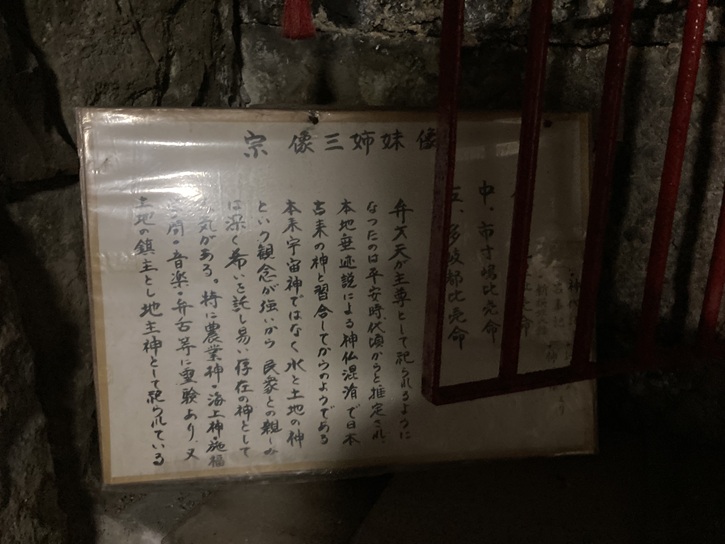 宗像三姉妹像
中・市寸嶋比売命
左、多岐都比売命
弁才天が主尊として祀られるように
なったのは平安時代頃からと推定され、
本地垂迹説による神仏混淆で日本
古来の神と習合してからのようである
本来宇宙神ではなく水と土地の神
という観念が強いから民衆との親しみ
は深く希いを託し易い存在の神として
気がある。特に農業神・海上神・施福
問・音楽・弁舌等に霊験あり、又
土地の鎮主とし地主神として祀られている